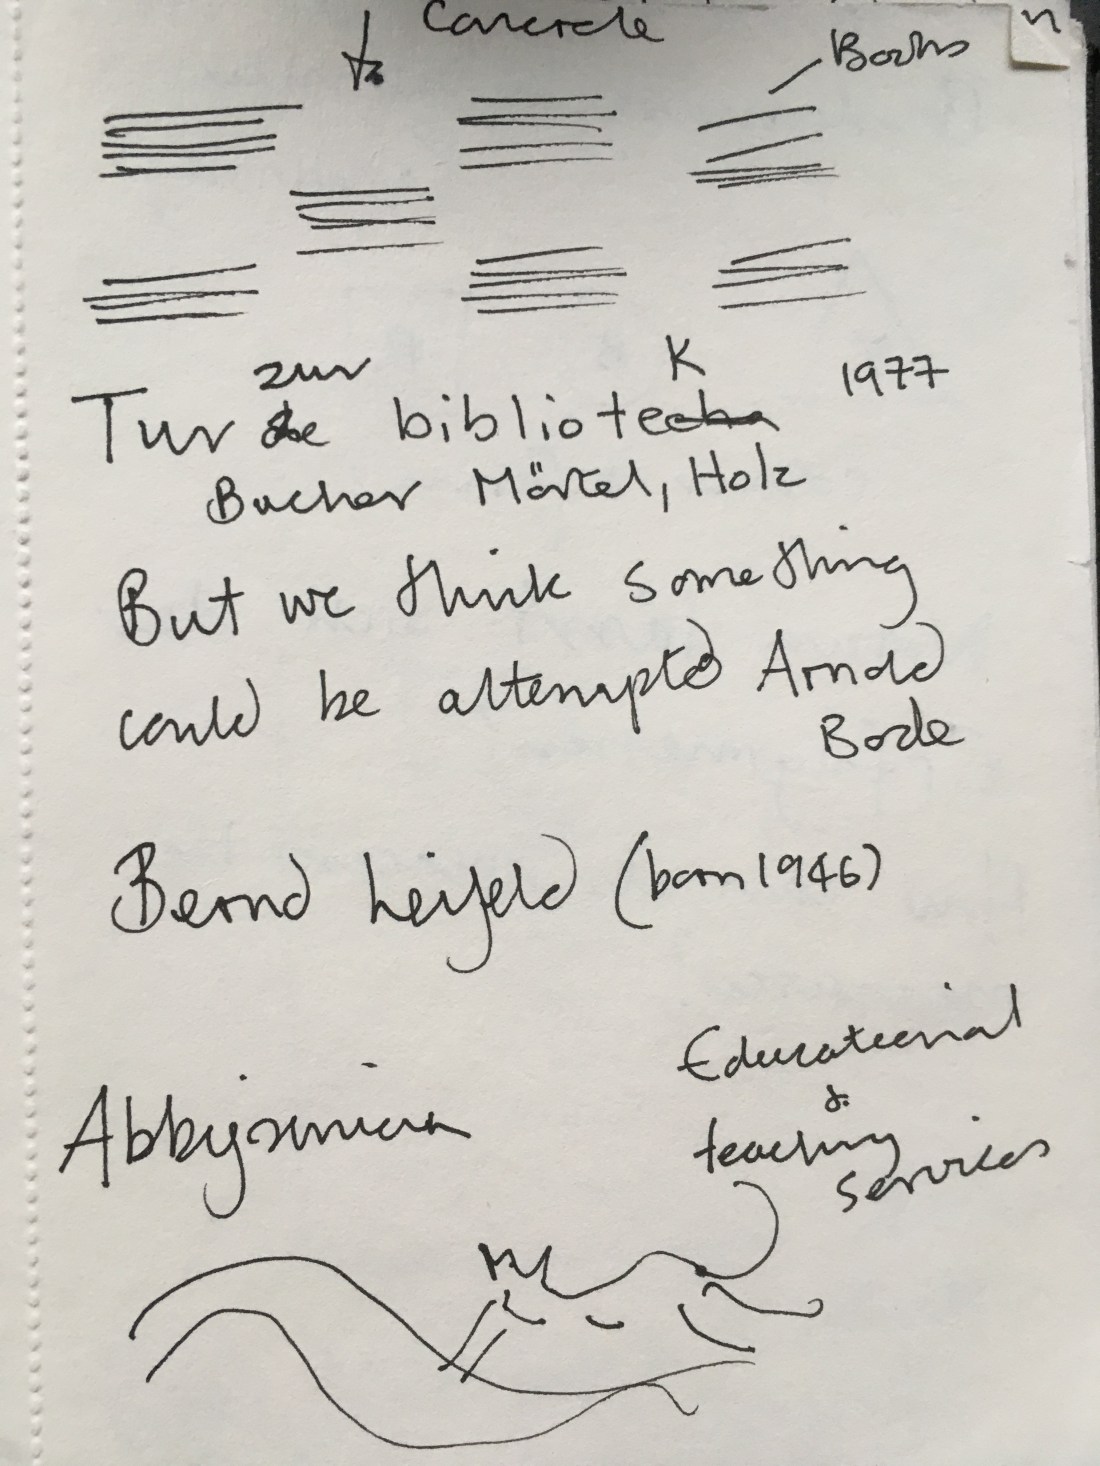 Concrete
Books
zur K 1977
Tur de bibliotecha
Bucher Mörtel, Holz
But we think something
could be attempted Arnold
Bode
Bernd Leifeld (born 1946)
Educational
&
teaching
services